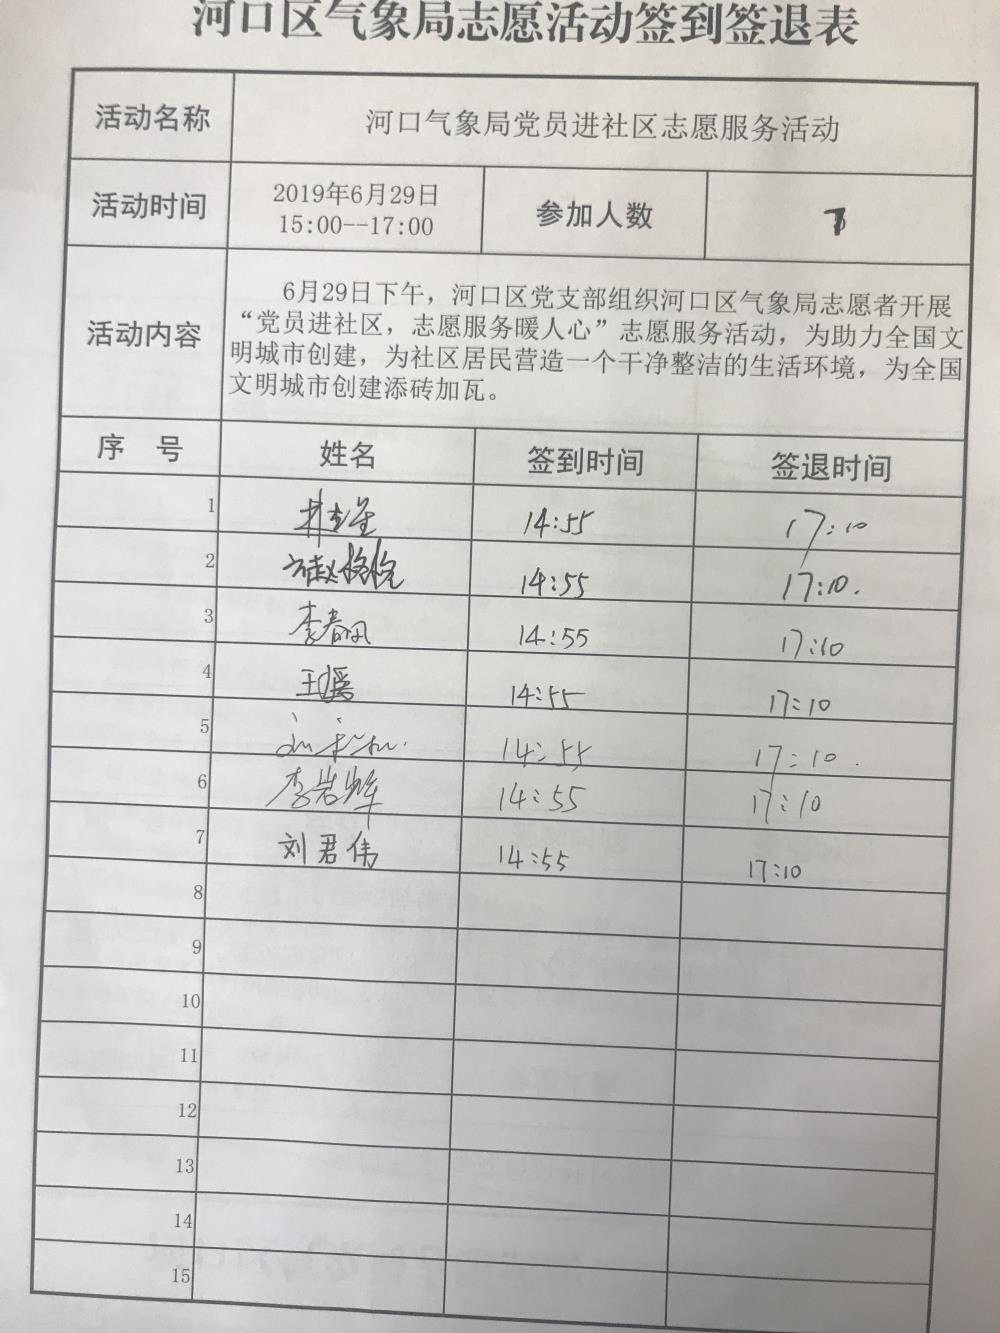 河口区气象局志愿活动签到签退表
活动名称 河口气象局党员进社区志愿服务活动
活动时间 2019年6月29日 15:00--17:00 参加人数 7
活动内容
6月29日下午，河口区党支部组织河口区气象局志愿者开展
“党员进社区，志愿服务暖人心”志愿服务活动，为助力全国文
明城市创建，为社区居民营造一个干净整洁的生活环境，为全国
文明城市创建添砖加瓦。
序 号 姓名 签到时间 签退时间
1 14:55 17:10
2 14:55 17:10.
3 李春风 14:55 17:10
4 王媛 14:55 17:10
5 14:55 17:10.
6 李岩峰 14:55 17:10
7 刘君伟 14:55 17:10
8
9
10
11
12
13
14
15